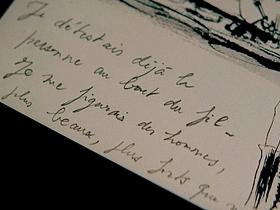 Je détestais déjà la
personne au bout du fil -
Je me figurais des hommes,
plus beaux, plus forts que